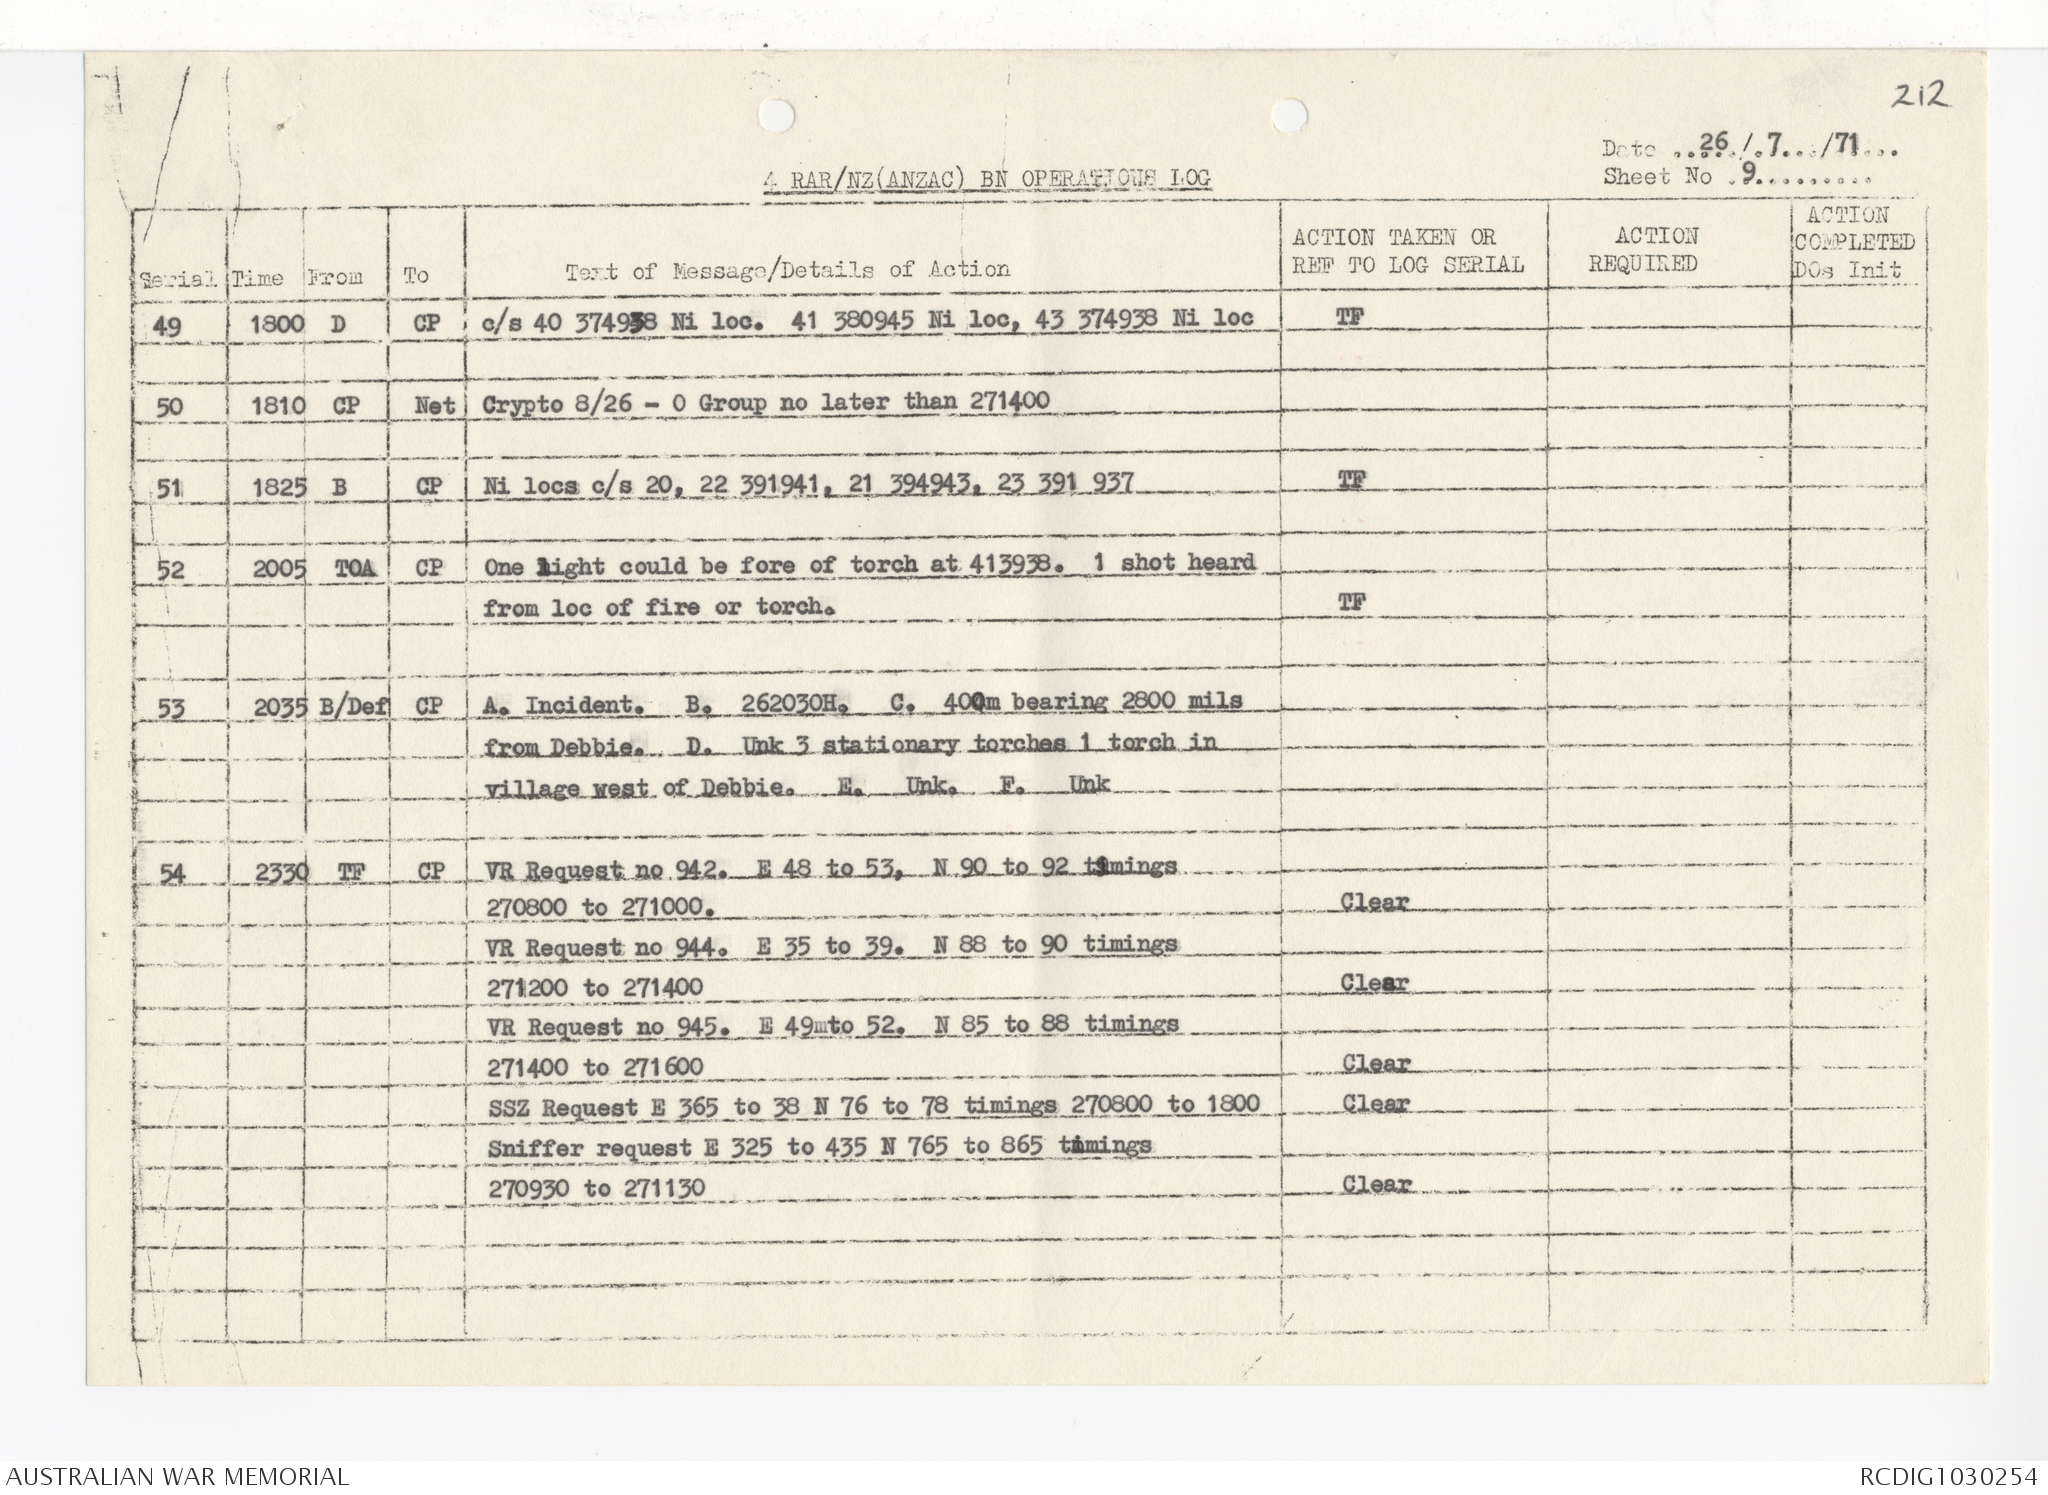 212
Date 26/7/71
Sheet No 9
4 RAR/NZ(ANZAC) BN OPERATIONS LOG
Serial Time From To Text of Message/Details of Action ACTION TAKEN OR REF TO LOG SERIAL ACTION REQUIRED ACTION COMPLETED DOs Init
49 1800 D CP c/s 40 374938 Ni loc. 41 380945 Ni loc, 43 374938 Ni loc TF
50 1810 CP Net Crypto 8/26 - O Group no later than 271400
51 1825 B CP Ni locs c/s 20, 22 391941, 21 394943, 23 391 937 TF
52 2005 TOA CP One light could be fore of torch at 413938. 1 shot heard
from loc of fire or torch. TF
53 2035 B/Def CP A. Incident. B. 262030H. C. 400m bearing 2800 mils
from Debbie. D. Unk 3 stationary torches 1 torch in
village west of Debbie. E. Unk. F. Unk
54 2330 TF CP VR Request no 942. E 48 to 53, N 90 to 92 timings
270800 to 271000. Clear
VR Request no 944. E 35 to 39. N 88 to 90 timings
271200 to 271400 Clear
VR Request no 945. E 49mto 52. N 85 to 88 timings
271400 to 271600 Clear
SSZ Request E 365 to 38 N 76 to 78 timings 270800 to 1800 Clear
Sniffer request E 325 to 435 N 765 to 865 timings
270930 to 271130 Clear
AUSTRALIAN WAR MEMORIAL
RCDIG1030254